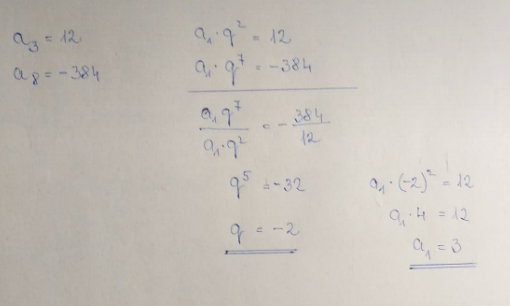 a₃ = 12
a₈ = -384
a₁ · q² = 12
a₁ · q⁷ = -384
a₁ q⁷ / a₁ · q² = - 384 / 12
q⁵ = -32
q = -2
a₁ · (-2)² = 12
a₁ · 4 = 12
a₁ = 3